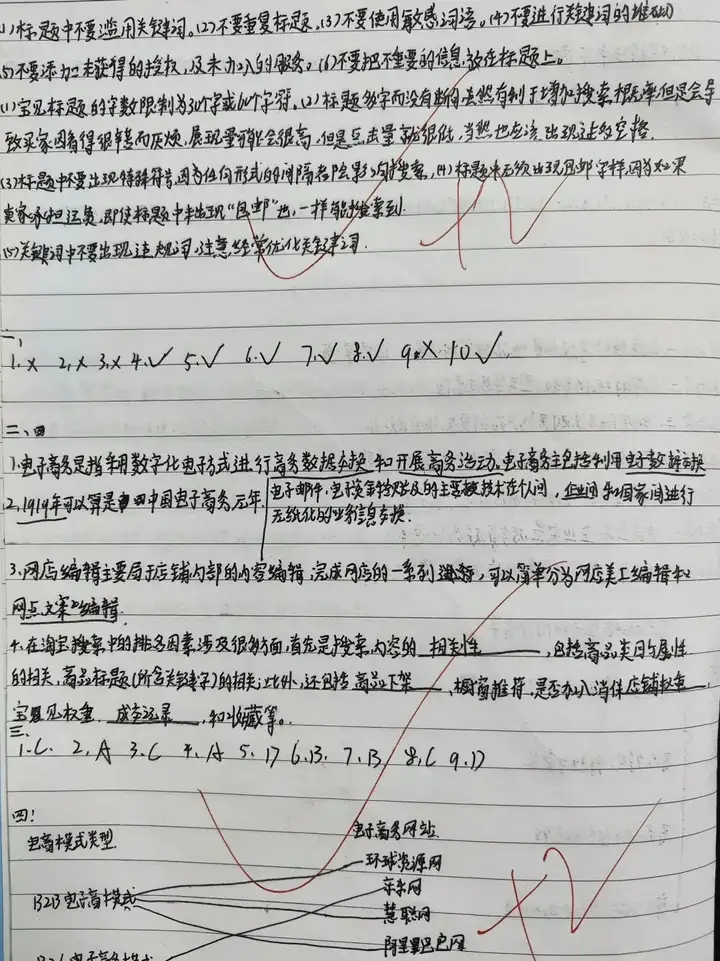 (1)标题中不要滥用关键词。(2)不要重复标题。(3)不要使用敏感词语。(4)不要进行关键词的堆砌
(5)不要添加未获得的授权,及未加入的服务。(6)不要把不重要的信息放在标题上。
(1)宝贝标题的字数限制为30个字或60个字符。(2)标题多字而没有断句虽然有利于增加搜索概率但是会导
致买家因看得很辛苦而厌烦,展现量可能会很高,但是点击量就很低,当然也应该出现适应空格
(3)标题中不要出现特殊符号,因为任何形式的间隔者险影响搜索,(4)标题中无须出现包邮字样,因为如果
卖家承担运费,即使标题中未出现“包邮”也一样能搜索到.
(5)关键词中不要出现违规词,注意经常优化关键词.
一、
1.× 2.× 3.× 4.✓ 5.✓ 6.✓ 7.✓ 8.✓ 9.× 10✓.
二、四
1.电子商务是指采用数字化电子方式进行商务数据交换和开展商务活动。电子商务主包括利用电子数据交换
电子邮件,电子资金转账及的主要技术在个人间,企业间和国家间进行
无纸化的业务信息交换.
2.1919年可以算是中国电子商务元年
3.网店编辑主要局于店铺内部的内容编辑,完成网店的一系列,可以简单分为网店美工编辑和
网点文案编辑.
4.在淘宝搜索中的排名因素涉及很多方面,首先是搜索内容的 相关性 ,包括商品类目与属性
的相关,商品标题(所含关键字)的相关;此外,还包括商品下架 ,橱窗推荐,是否加入消保店铺权重,
宝贝权重, 成交记录 ,和收藏等。
三、
1.C. 2.A 3.C 4.A 5.D 6.B. 7.B 8.C 9.D
四!
电商模式类型.
电子商务网站.
环球资源网
京东网
B2B电子商模式
慧聪网
阿里巴巴网
电子商务模式